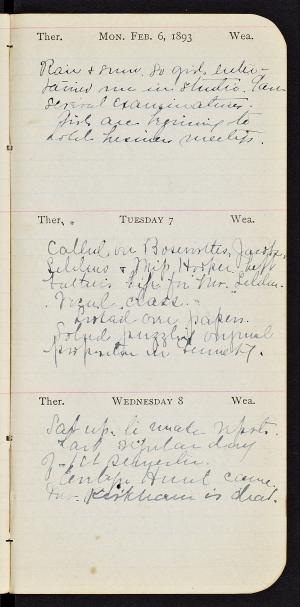 Ther. MON. FEB. 6, 1893 Wea.
Rain & snow. So girls enter-
tained me in studio. Gave
several examinations.
Girls are beginning to
hold business meetings.
Ther. TUESDAY 7 Wea.
Called on Jacobs,
& Miss Hooper. Left
for Mrs.
Virgil class.
over papers.
Solved puzzling original
proposition in Geometry.
Ther. WEDNESDAY 8 Wea.
Sat up to make reports.
Last regular day
of 1st semester.
Hunt came.
Mr. Kirkham is dead.